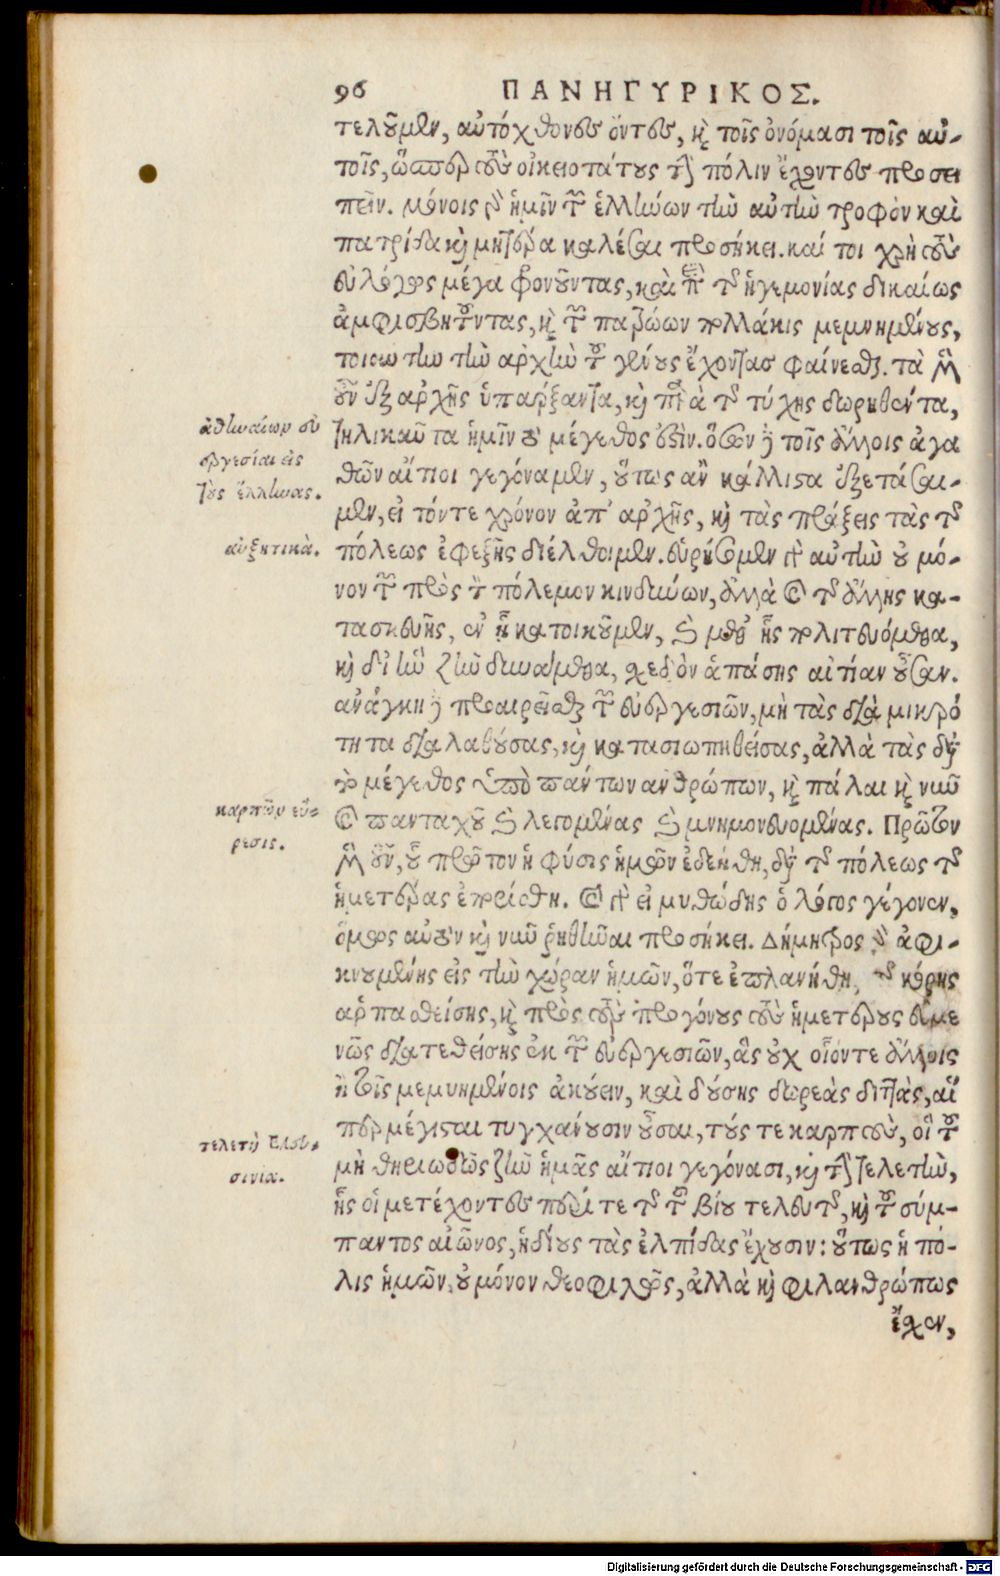 96 ΠΑΝΗΓΥΡΙΚΟΣ.
τελοῦμεν, αὐτόχθονες ὄντες, καὶ τοῖς ὀνόμασι τοῖς αὐ-
τοῖς, ὥσπερ τοὺς οἰκειοτάτους τὴν πόλιν ἔχοντες προσει
πεῖν. μόνοις γὰρ ἡμῖν τῶν ἑλλήνων τὴν αὐτὴν τροφὸν καὶ
πατρίδα καὶ μητέρα καλέσαι προσήκει. καί τοι χρὴ τοὺς
εὐλόγως μέγα φρονοῦντας, καὶ περὶ τῆς ἡγεμονίας δικαίως
ἀμφισβητοῦντας, καὶ τῶν πατρώων πολλάκις μεμνημένους,
τοιαύτην τὴν ἀρχὴν τοῦ γένους ἔχοντας φαίνεσθαι. τὰ μὲν
οὖν ἐξ ἀρχῆς ὑπάρξαντα, καὶ παρὰ τῆς τύχης δωρηθέντα,
τηλικαῦτα ἡμῖν τὸ μέγεθός ἐστιν. ὅσων δὲ τοῖς ἄλλοις ἀγα
θῶν αἴτιοι γεγόναμεν, οὕτως ἂν κάλλιστα ἐξετάσαι-
μεν, εἰ τόν τε χρόνον ἀπ' ἀρχῆς, καὶ τὰς πράξεις τὰς τῆς
πόλεως ἐφεξῆς διέλθοιμεν. εὑρήσομεν γὰρ αὐτὴν οὐ μό-
νον τῶν πρὸς τὸν πόλεμον κινδύνων, ἀλλὰ καὶ τῆς ἄλλης κα-
τασκευῆς, ἐν ᾗ κατοικοῦμεν, καὶ μεθ' ἧς πολιτευόμεθα,
καὶ δι' ἣν ζῆν δυνάμεθα, σχεδὸν ἁπάσης αἰτίαν οὖσαν.
ἀνάγκη δὲ προαιρεῖσθαι τῶν εὐεργεσιῶν, μὴ τὰς διὰ μικρό
τητα διαλαθούσας, καὶ κατασιωπηθείσας, ἀλλὰ τὰς διὰ
τὸ μέγεθος ὑπὸ πάντων ἀνθρώπων, καὶ πάλαι καὶ νῦν
καὶ πανταχοῦ καὶ λεγομένας καὶ μνημονευομένας. Πρῶτον
μὲν οὖν, οὗ πρῶτον ἡ φύσις ἡμῶν ἐδεήθη, διὰ τῆς πόλεως τῆς
ἡμετέρας ἐπορίσθη. καὶ γὰρ εἰ μυθώδης ὁ λόγος γέγονεν,
ὅμως αὐτὸν καὶ νῦν ῥηθῆναι προσήκει. Δήμητρος γὰρ ἀφι-
κνουμένης εἰς τὴν χώραν ἡμῶν, ὅτε ἐπλανήθη, τῆς κόρης
ἁρπασθείσης, καὶ πρὸς τοὺς προγόνους τοὺς ἡμετέρους εὐμε
νῶς διατεθείσης ἐκ τῶν εὐεργεσιῶν, ἃς οὐχ οἷόντε ἄλλοις
ἢ τοῖς μεμυημένοις ἀκούειν, καὶ δούσης δωρεὰς διττὰς, αἵ
περ μέγισται τυγχάνουσιν οὖσαι, τούς τε καρποὺς, οἳ τοῦ
μὴ θηριωδῶς ζῆν ἡμᾶς αἴτιοι γεγόνασι, καὶ τὴν τελετὴν,
ἧς οἱ μετέχοντες περί τε τῆς τοῦ βίου τελευτῆς, καὶ τοῦ σύμ-
παντος αἰῶνος, ἡδίους τὰς ἐλπίδας ἔχουσιν: οὕτως ἡ πό-
λις ἡμῶν, οὐ μόνον θεοφιλῶς, ἀλλὰ καὶ φιλανθρώπως
ἔσχεν,
ἀθηναίων εὐ
εργεσίαι εἰς
τοὺς ἕλληνας.
αὐξητικὰ.
καρπῶν εὕ-
ρεσις.
τελετὴ ἐλευ-
σινία.
Digitalisierung gefördert durch die Deutsche Forschungsgemeinschaft - DFG